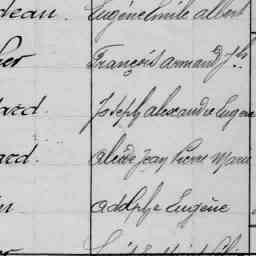 deau. Eugène Emile Albert
François Armand Jh
ard. Joseph Alexandre Eugène
ard. Alcide Jean Pierre Marie
Adolphe Eugène